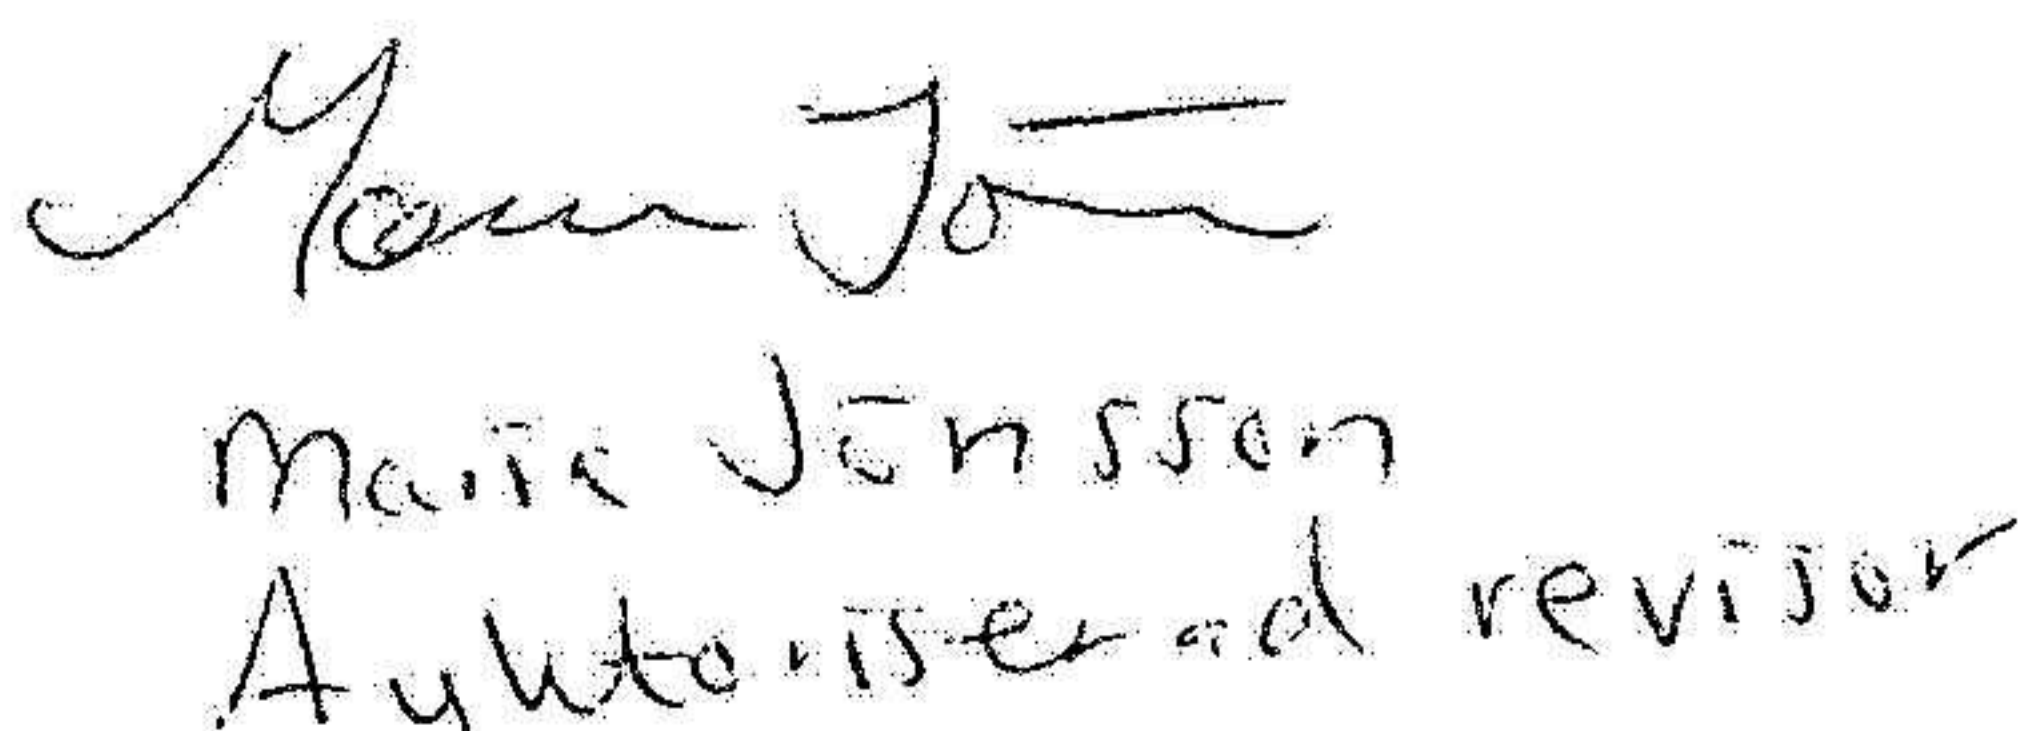 Maria Jönsson
Maria Jönsson
Auktoriserad revisor